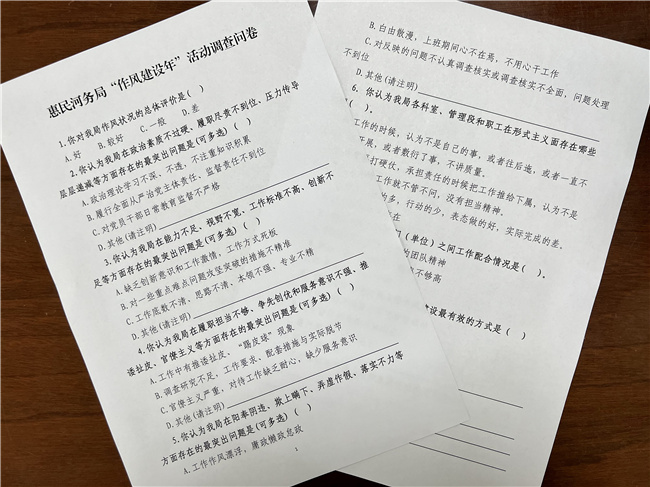 惠民河务局“作风建设年”活动调查问卷
1.你对我局作风状况的总体评价是( )
A.好 B.较好 C.一般 D.差
2.你认为我局在政治素质不过硬、履职尽责不到位、压力传导
层层递减等方面存在的最突出问题是(可多选) ( )
A.政治理论学习不深、不透、不注重知识积累
B.履行全面从严治党主体责任、监督责任不到位
C.对党员干部日常教育监督不严格
D.其他(请注明)
3.你认为我局在能力不足、视野不宽、工作标准不高、创新不
足等方面存在的最突出问题是(可多选) ( )
A.缺乏创新意识和工作激情，工作方式死板
B.对一些重点难点问题攻坚突破的措施不精准
C.工作底数不清、思路不清、本领不强、专业不精
D.其他(请注明)
4.你认为我局在履职担当不够、争先创优和服务意识不强、推
诿扯皮、官僚主义等方面存在的最突出问题是(可多选) ( )
A.工作中有推诿扯皮、“踢皮球”现象
B.调查研究不足，工作要求、配套措施与实际脱节
C.官僚主义严重，对待工作缺乏耐心，缺少服务意识
D.其他(请注明)
5.你认为我局在阳奉阴违、欺上瞒下、弄虚作假、落实不力等
方面存在的最突出问题是(可多选) ( )
A.工作作风漂浮，庸政懒政怠政
1
B.自由散漫，上班期间心不在焉，不用心干工作
C.对反映的问题不认真调查核实或调查核实不全面，问题处理
不到位
D.其他(请注明)
6、你认为我局各科室、管理段和职工在形式主义面存在哪些
( )。
工作的时候，认为不是自己的事，或者往后拖，或者一直不
开展，或者敷衍了事，不讲质量。
打硬仗，承担责任的时候把工作推给下属，认为不是
工作就不管不问，没有担当精神。
的多，行动的少，表态做的好，实际完成的差。
在
门（单位）之间工作配合情况是( )。
的团队精神
也不够高
建设最有效的方式是( )